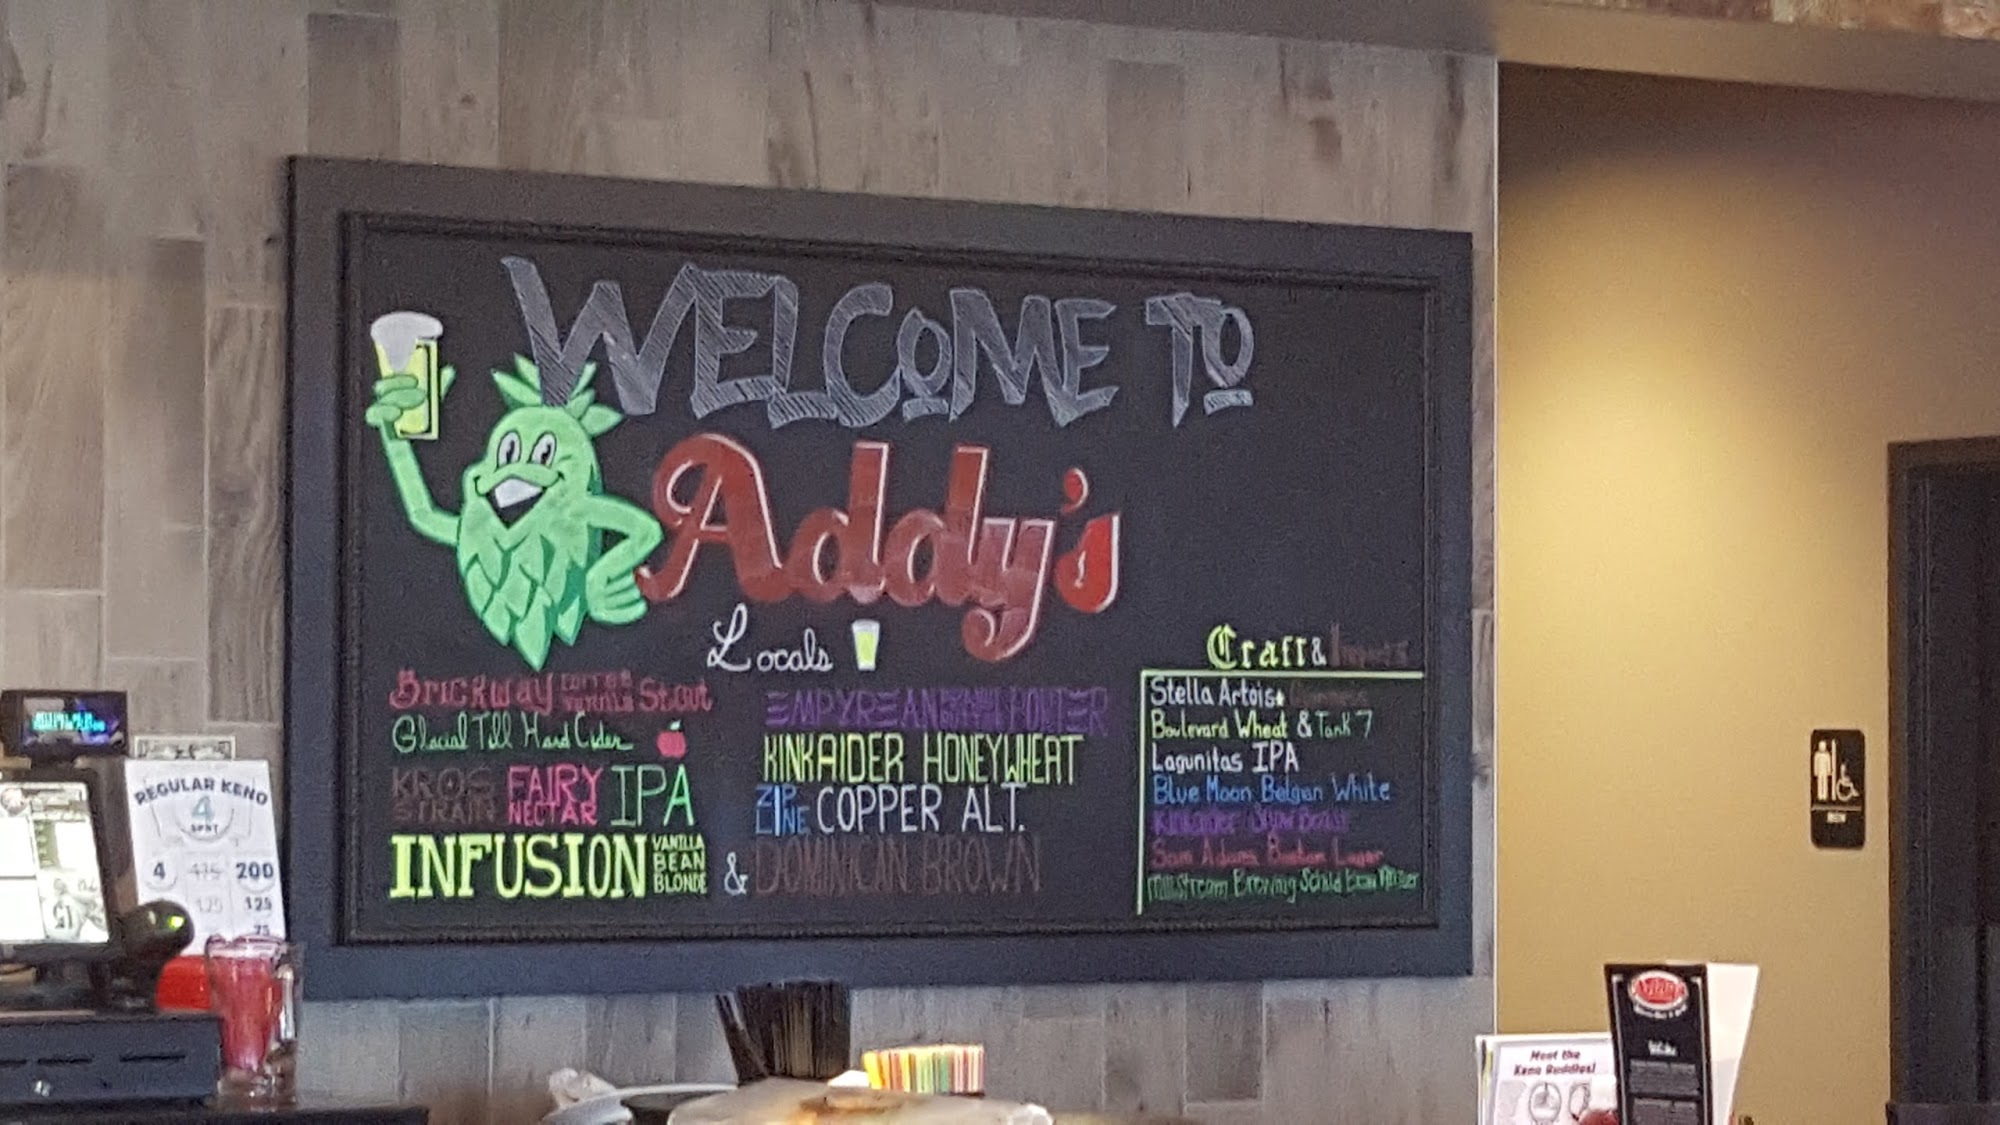 WELCOME TO
Addy's
Locals
Brickway COFFEE VANILLA Stout
Glacial Till Hard Cider
KROS STRAIN FAIRY NECTAR IPA
INFUSION VANILLA BEAN BLONDE
&
EMPYREAN PORTER
KINKAIDER HONEYWHEAT
ZIP LINE COPPER ALT.
DOMINICAN BROWN
Craft & Imports
Stella Artois
Guinness
Boulevard Wheat & Tank 7
Lagunitas IPA
Blue Moon Belgian White
Kinkaider
Sam Adams Boston Lager
Millstream Brewing Schild Brau
REGULAR KENO
4
SPOT
4 200
125
75
MEN
Meet the
Keno Buddies!